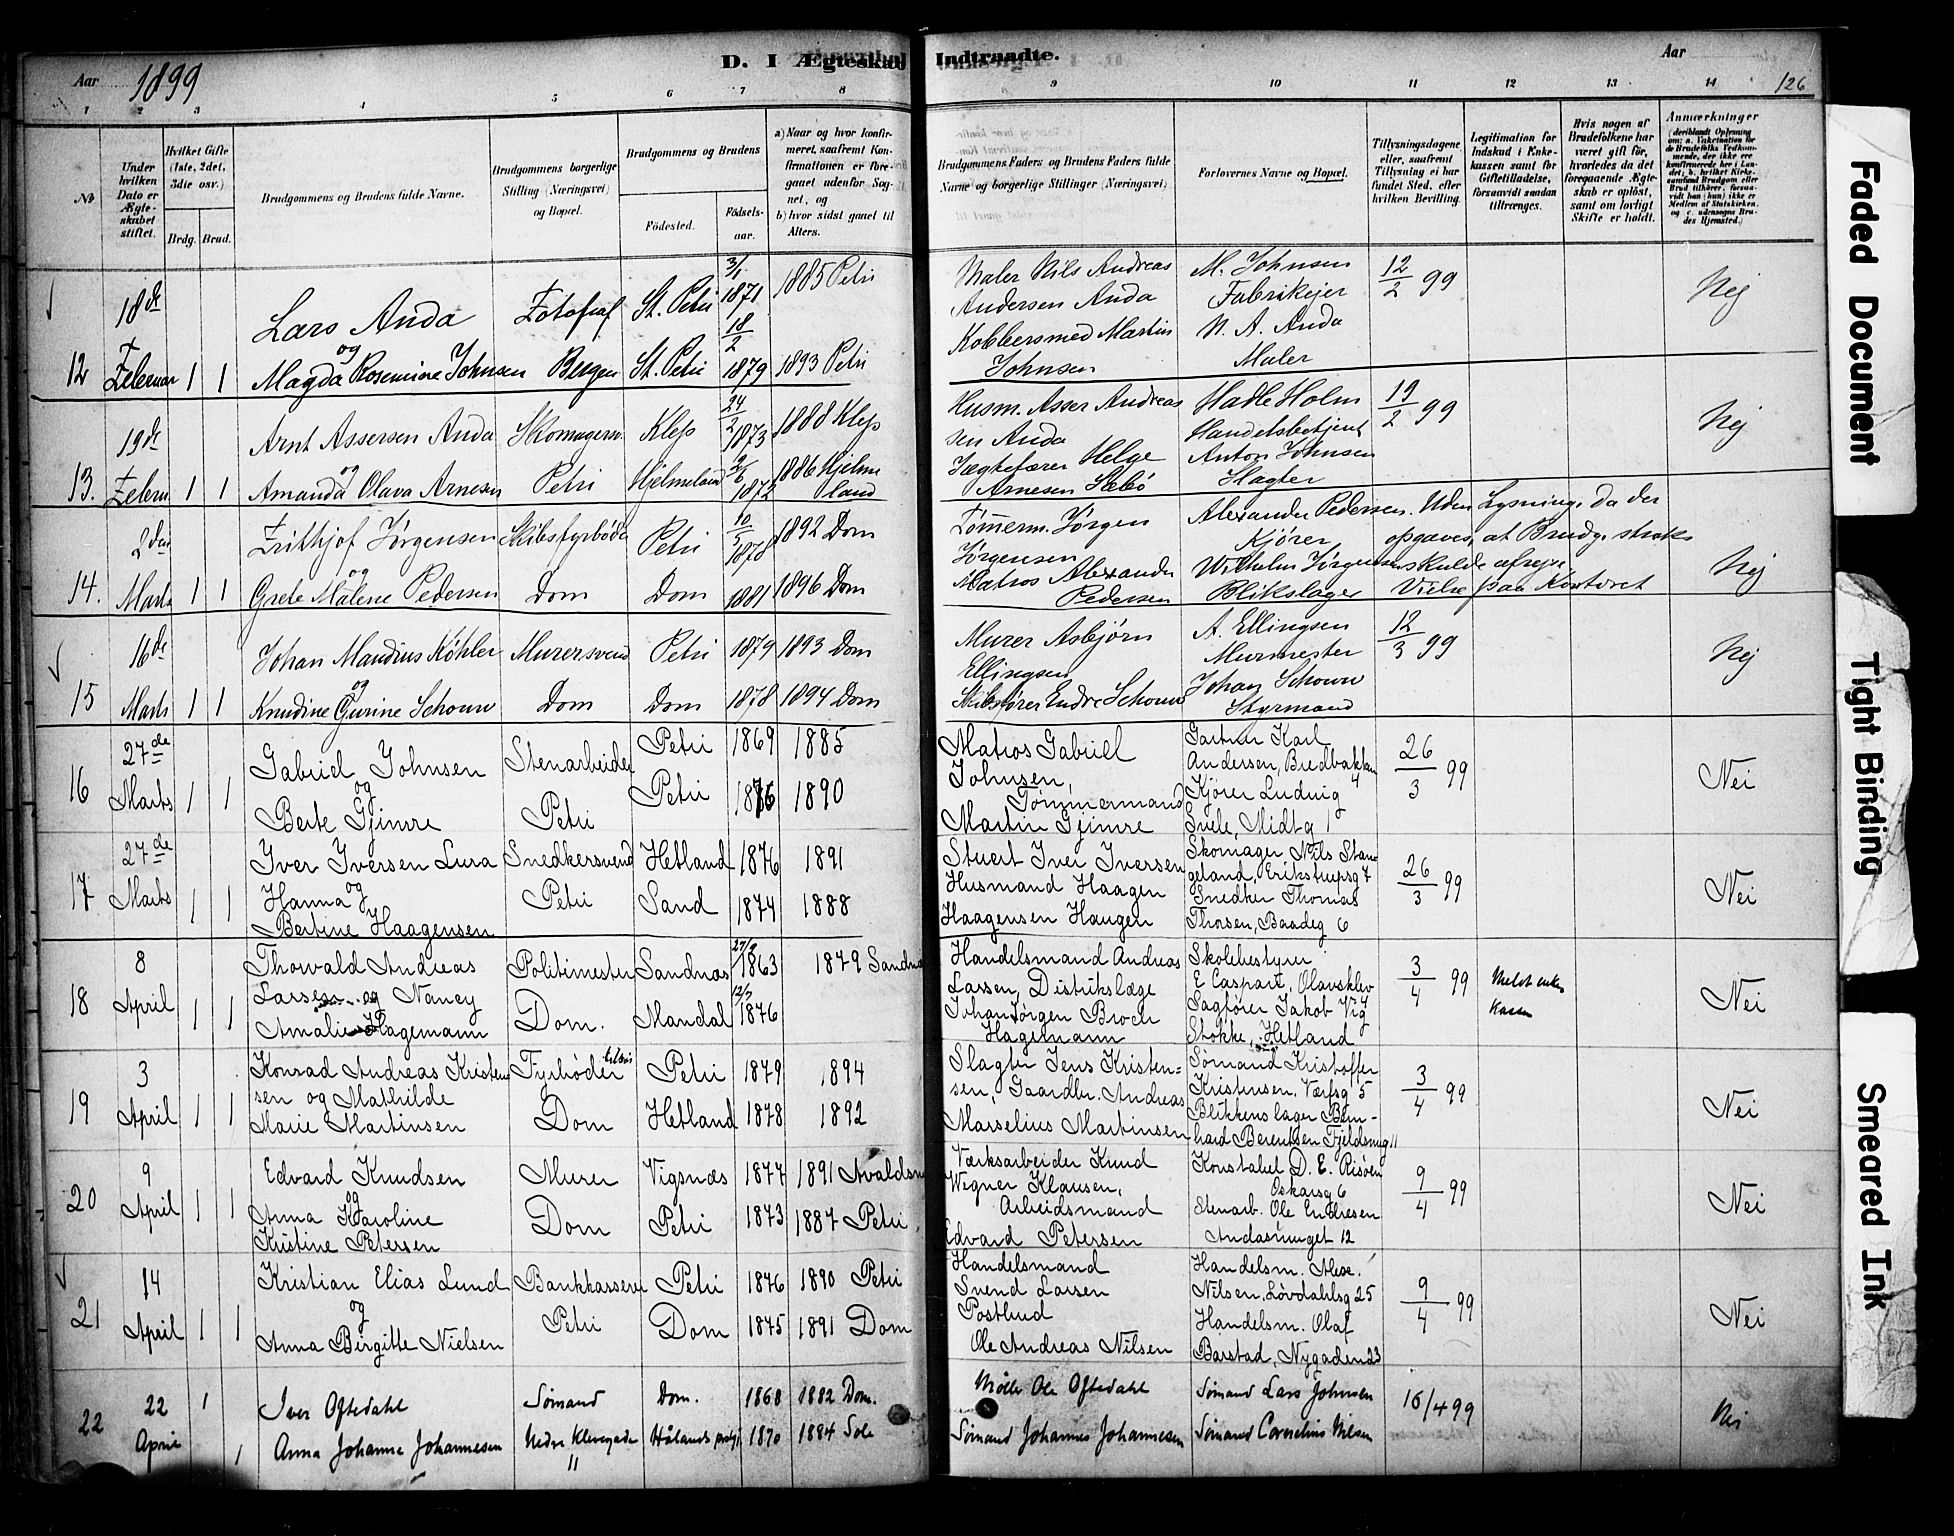 Aar 1899
D. I Ægteskab Indtraadte.
Aar
126
1 2 3 4 5 6 7 8 9 10 11 12 13 14
№
Under hvilken Dato er Ægteskabet stiftet.
Hvilket Gifte (1ste, 2det, 3die osv.)
Brdg. Brud.
Brudgommens og Brudens fulde Navne.
Brudgommens borgerlige Stilling (Næringsvei) og Bopæl.
Brudgommens og Brudens
Fødested.
Fødselsaar.
a) Naar og hvor konfirmeret, saafremt Konfirmationen er foregaaet udenfor Sognet, og
b) hvor sidst gaaet til Alters.
Brudgommens Faders og Brudens Faders fulde Navne og borgerlige Stillinger (Næringsvei)
Forlovernes Navne og Bopæl.
Tillysningsdagene eller, saafremt Tillysning ei har fundet Sted, efter hvilken Bevilling.
Legitimation for Indskud i Enkekassen samt for Giftetilladelse, forsaavidt saadan tiltrænges.
Hvis nogen af Brudefolkene har været gift før, hvorledes da det foregaaende Ægteskab er opløst, samt om lovligt Skifte er holdt.
Anmærkninger
12 18de Februar 1 1
Lars Anda
og
Magda Rosemine Johnsen
Fotograf
Bergen
St. Petri 3/1 1871 1885 Petri
St. Petri 18/2 1879 1893 Petri
Maler Nils Andreas
Andersen Anda
Kobbersmed Martin
Johnsen
M. Johnsen
Fabrikejer
N. A. Anda
Maler
12/2 99
Nej
13. 19de Febru 1 1
Arnt Assersen Anda
og
Amanda Olava Arnesen
Skomagersv.
Petri
Klep 24/2 1873 1888 Klep
Hjelmeland 1872 1886 Hjelmeland
Husm. Asser Andreas
sen Anda
Jægtefører Helge
Arnesen Sæbø
Hadle Holm
Handelsbetjent
Anton Johnsen
Slagter
19/2 99
Nej
14. 2den Marts 1 1
Frithjof Jørgensen
og
Grete Malene Pedersen
Skibsfyrbøder
Dom
Petri 10/5 1878 1892 Dom
Dom 1881 1896 Dom
Tømmerm. Jørgen
Jørgensen
Matros Alexander
Pedersen
Alexander Pedersen. Uden Lysning, da der
Kjører opgaves, at Brudg. straks
Wilhelm Jørgensen skulde afrejse.
Blikslager Vielse paa Kontoret
Nej
15 16de Marts 1 1
Johan Maudius Køhler
og
Knudine Gurine Schouw
Murersvend
Dom
Petri 1879 1893 Dom
Dom 1878 1894 Dom
Murer Asbjørn
Ellingsen
Skibsfører Endre Schouw
A. Ellingsen
Murmester
Johan Schouw
Styrmand
12/3 99
Nej
16 27de Marts 1 1
Gabriel Johnsen
og
Berte Gjimre
Stenarbeider
Petri
Petri 1869 1885
Petri 1876 1890
Matros Gabriel
Johnsen,
Tømmermand
Martin Gjimre
Gartner Karl
Andersen, Bredbakken
4
Kjører Ludvig
Svele, Midtg 1
26/3 99
Nei
17 27de Marts 1 1
Iver Iversen Lura
og
Hanna
Bertine Haagensen
Snedkersvend
Petri
Hetland 1876 1891
Sand 1874 1888
Stuert Iver Iversen
Husmand Haagen
Haagensen Haugen
Skomager Nils Stan
geland, Erikstrupsg 7
Snedker Thomas
Thorsen, Baadeg 6
26/3 99
Nei
18 8 April 1 1
Thorvald Andreas
Larsen og Nancy
Amalie Hagemann
Politimester
Dom.
Sandnæs 27/9 1863 1879 Sandnæs
Mandal 12/7 1876
Handelsmand Andreas
Larsen, Distrikslæge
Johan Jørgen Broch
Hagemann
Skolebestyrer
E Caspari, Olavsklev
Sagfører Jakob Vig
Stokke, Hetland
3/4 99
Meldt enke
kassen
Nei
19 3 April 1 1
Konrad Andreas Kristen
sen og Mathilde
Marie Martinsen
Fyrbøder tilsøs
Dom
Petri 1879 1894
Hetland 1878 1892
Slagter Jens Kristen=
sen, Gaardbr. Andreas
Marselius Martinsen
Sømand Kristoffer
Kristensen. Værfsg 5
Blikkenslager Bern-
hard Berentsen Fjeldsmug 11
3/4 99
Nei
20 9 April 1 1
Edvard Knudsen
og
Anna Karoline
Kristine Petersen
Murer
Dom
Vigsnæs 1877 1891 Avaldsn
Petri 1873 1887 Petri
Værksarbeider Knud
Wegner Klausen,
Arbeidsmand
Edvard Petersen
Konstabel D. E. Risøen
Oskarsg 6
Stenarb. Ole Endresen
Andasmuget 12
9/4 99
Nei
21 14 April 1 1
Kristian Elias Lund
og
Anna Birgitte Nielsen
Bankkasserer
Petri
Petri 1876 1890 Petri
Dom 1875 1891 Dom
Handelsmand
Svend Larsen
Postbud
Ole Andreas Nilsen
Handelsm. Alex.
Nilsen, Løvdahlsg 25
Handelsm. Olaf
Barstad, Nygaden 23
9/4 99
Nei
22 22 April 1 1
Iver Oftedahl
Anna Johanne Johannesen
Sømand
Nedre Klevegade
11
Dom. 1868 1882 Dom.
Hålands prstgj. 1870 1884 Sole
Møller Ole Oftedahl
Sømand Johannes Johannesen
Sømand Lars Johnsen
Sømand Cornelius Nilsen
16/4 99
Nei
Faded Document
Tight Binding
Smeared Ink